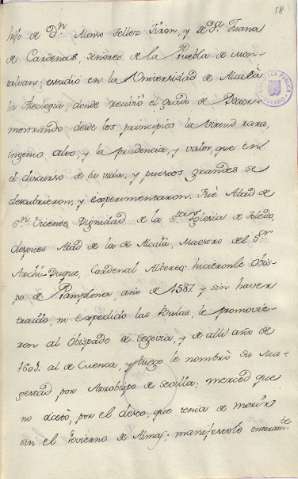 18
hijo de Dn. Alonso Tellez Giron, y de Da. Juana
de Cardenas, señores de la Puebla de Mon-
talvan; estudió en la Universidad de Alcalá
la Theologia, donde recivió el grado de Doctor
mostrando desde los principios la virtud rara,
ingenio alto, y la prudencia, y valor, que en
el discurso de su vida, y puestos grandes se
descubrieron, y experimentaron. Fué Abad de
Sn. Vicente, Dignidad de la Sta. Iglesia de Toledo,
despues Abad de la de Alcalá, Maestro del Sr.
Archi-Duque, Cardenal Alberto; hicieronle Obis-
po de Pamplona, año de 1587. y sin haver
ni expedido las Bulas, le promovie-
ron al Obispado de Segovia, y de alli año de
1601. al de Cuenca, y luego le nombró Su Ma-
gestad por Arzobispo de Sevilla, merced que
no acetó, por el deseo, que tenia de morir
en el Govierno de Almas; manifestolo